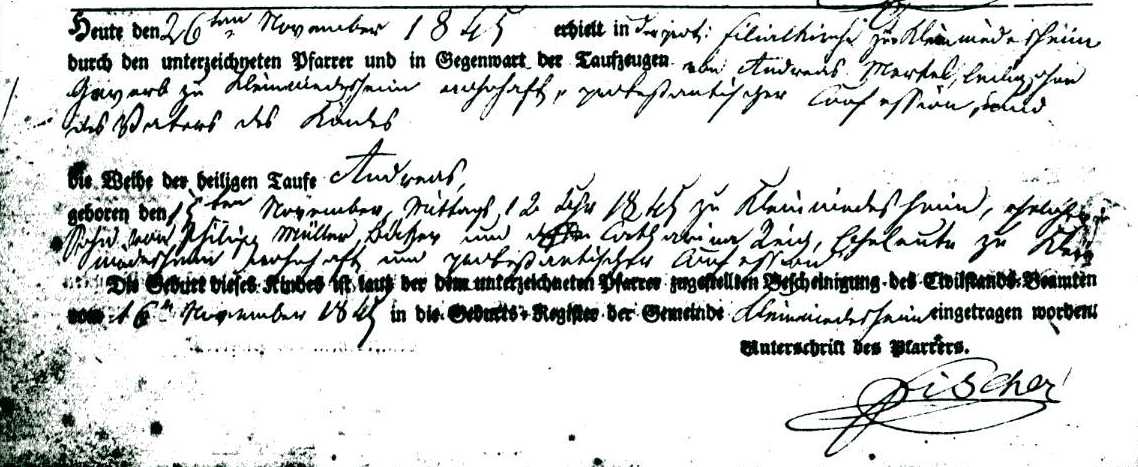 Heute den 26ten November 1845 erhielt in der prot: Filialkirche zu Kleinniedesheim
durch den unterzeichneten Pfarrer und in Gegenwart der Taufzeugen von Andreas Merkel, ledig, ohne
Gewerb zu Kleinniedesheim wohnhaft, protestantischer Confession, und
des Vaters des Kindes
die Weihe der heiligen Taufe Andreas,
geboren den 15ten November, Mittags 12 Uhr 1845 zu Kleinniedesheim, ehelicher
Sohn von Philipp Müller, und Catharina Eheleute zu Klein
niedesheim wohnhaft und protestantischer Confession
Die Geburt dieses Kindes ist laut der dem unterzeichneten Pfarrer zugestellten Bescheinigung des Civilstands-Beamten
vom 16ten November 1845 in die Geburts-Register der Gemeinde Kleinniedesheim eingetragen worden.
Unterschrift des Pfarrers.
Fischer